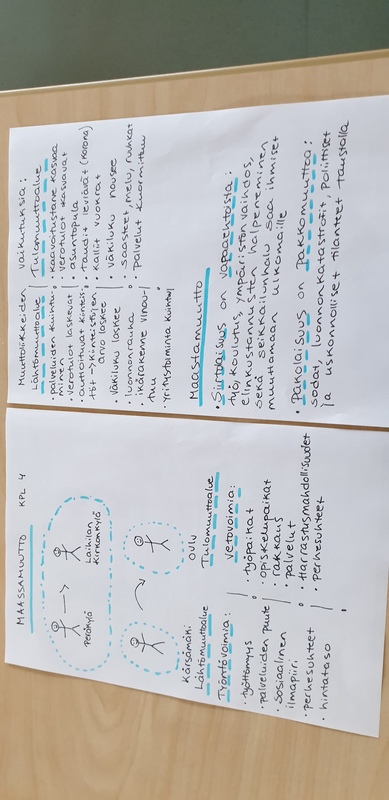 MAASSAMUUTTO KPL 4
Peräkylä
Laihian
Kirkonkylä
Kärsämäki
Lähtömuuttoalue
Työntövoimia:
• työttömyys
• palveluiden puute
• sosiaalinen
ilmapiiri
• perhesuhteet
• hintataso
OULU
Tulomuuttoalue
Vetovoimia:
• työpaikat
• opiskelupaikat
• rakkaus
• palvelut
• Harrastusmahdollisuudet
• perhesuhteet
Muuttoliikkeiden vaikutuksia:
Lähtömuuttoalue
• palveluiden kuihtu-
minen
• verotulot laskevat
• autioituvat kiinteis-
töt → kiinteistöjen
arvo laskee
• väkiluku laskee
• luonnonrauha
• ikärakenne vinou-
tuu
• yritystoiminta kuihtuu
Tulomuuttoalue
• kaavoitustarve kasvaa
• verotulot kasvavat
• asuntopula
• Taudit leviävät (Korona)
• Kalliit vuokrat
• väkiluku nousee
• saasteet, melu, ruuhkat
• palvelut kuormittuu
Maastamuutto
• Siirtolaisuus on vapaaehtoista:
työ, koulutus, ympäristön vaihdos,
elinkustannusten halpeneminen
sekä seikkailunhalu saa ihmiset
muuttamaan ulkomaille
• Pakolaisuus on pakkomuuttoa:
sodat, luonnonkatastrofit, poliittiset
ja uskonnolliset tilanteet taustalla